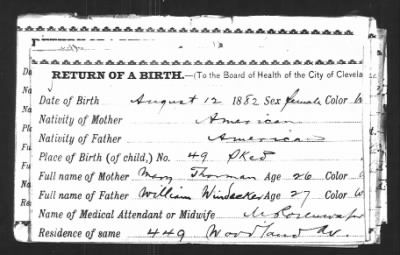 RETURN OF A BIRTH.—(To the Board of Health of the City of Clevela
Date of Birth August 12 1882 Sex female Color W
Nativity of Mother American
Nativity of Father American
Place of Birth (of child,) No. 49
Full name of Mother Mary Thorman Age 26 Color
Full name of Father William Windecker Age 27 Color W
Name of Medical Attendant or Midwife M Rosenwasser
Residence of same 449 Woodland Av.